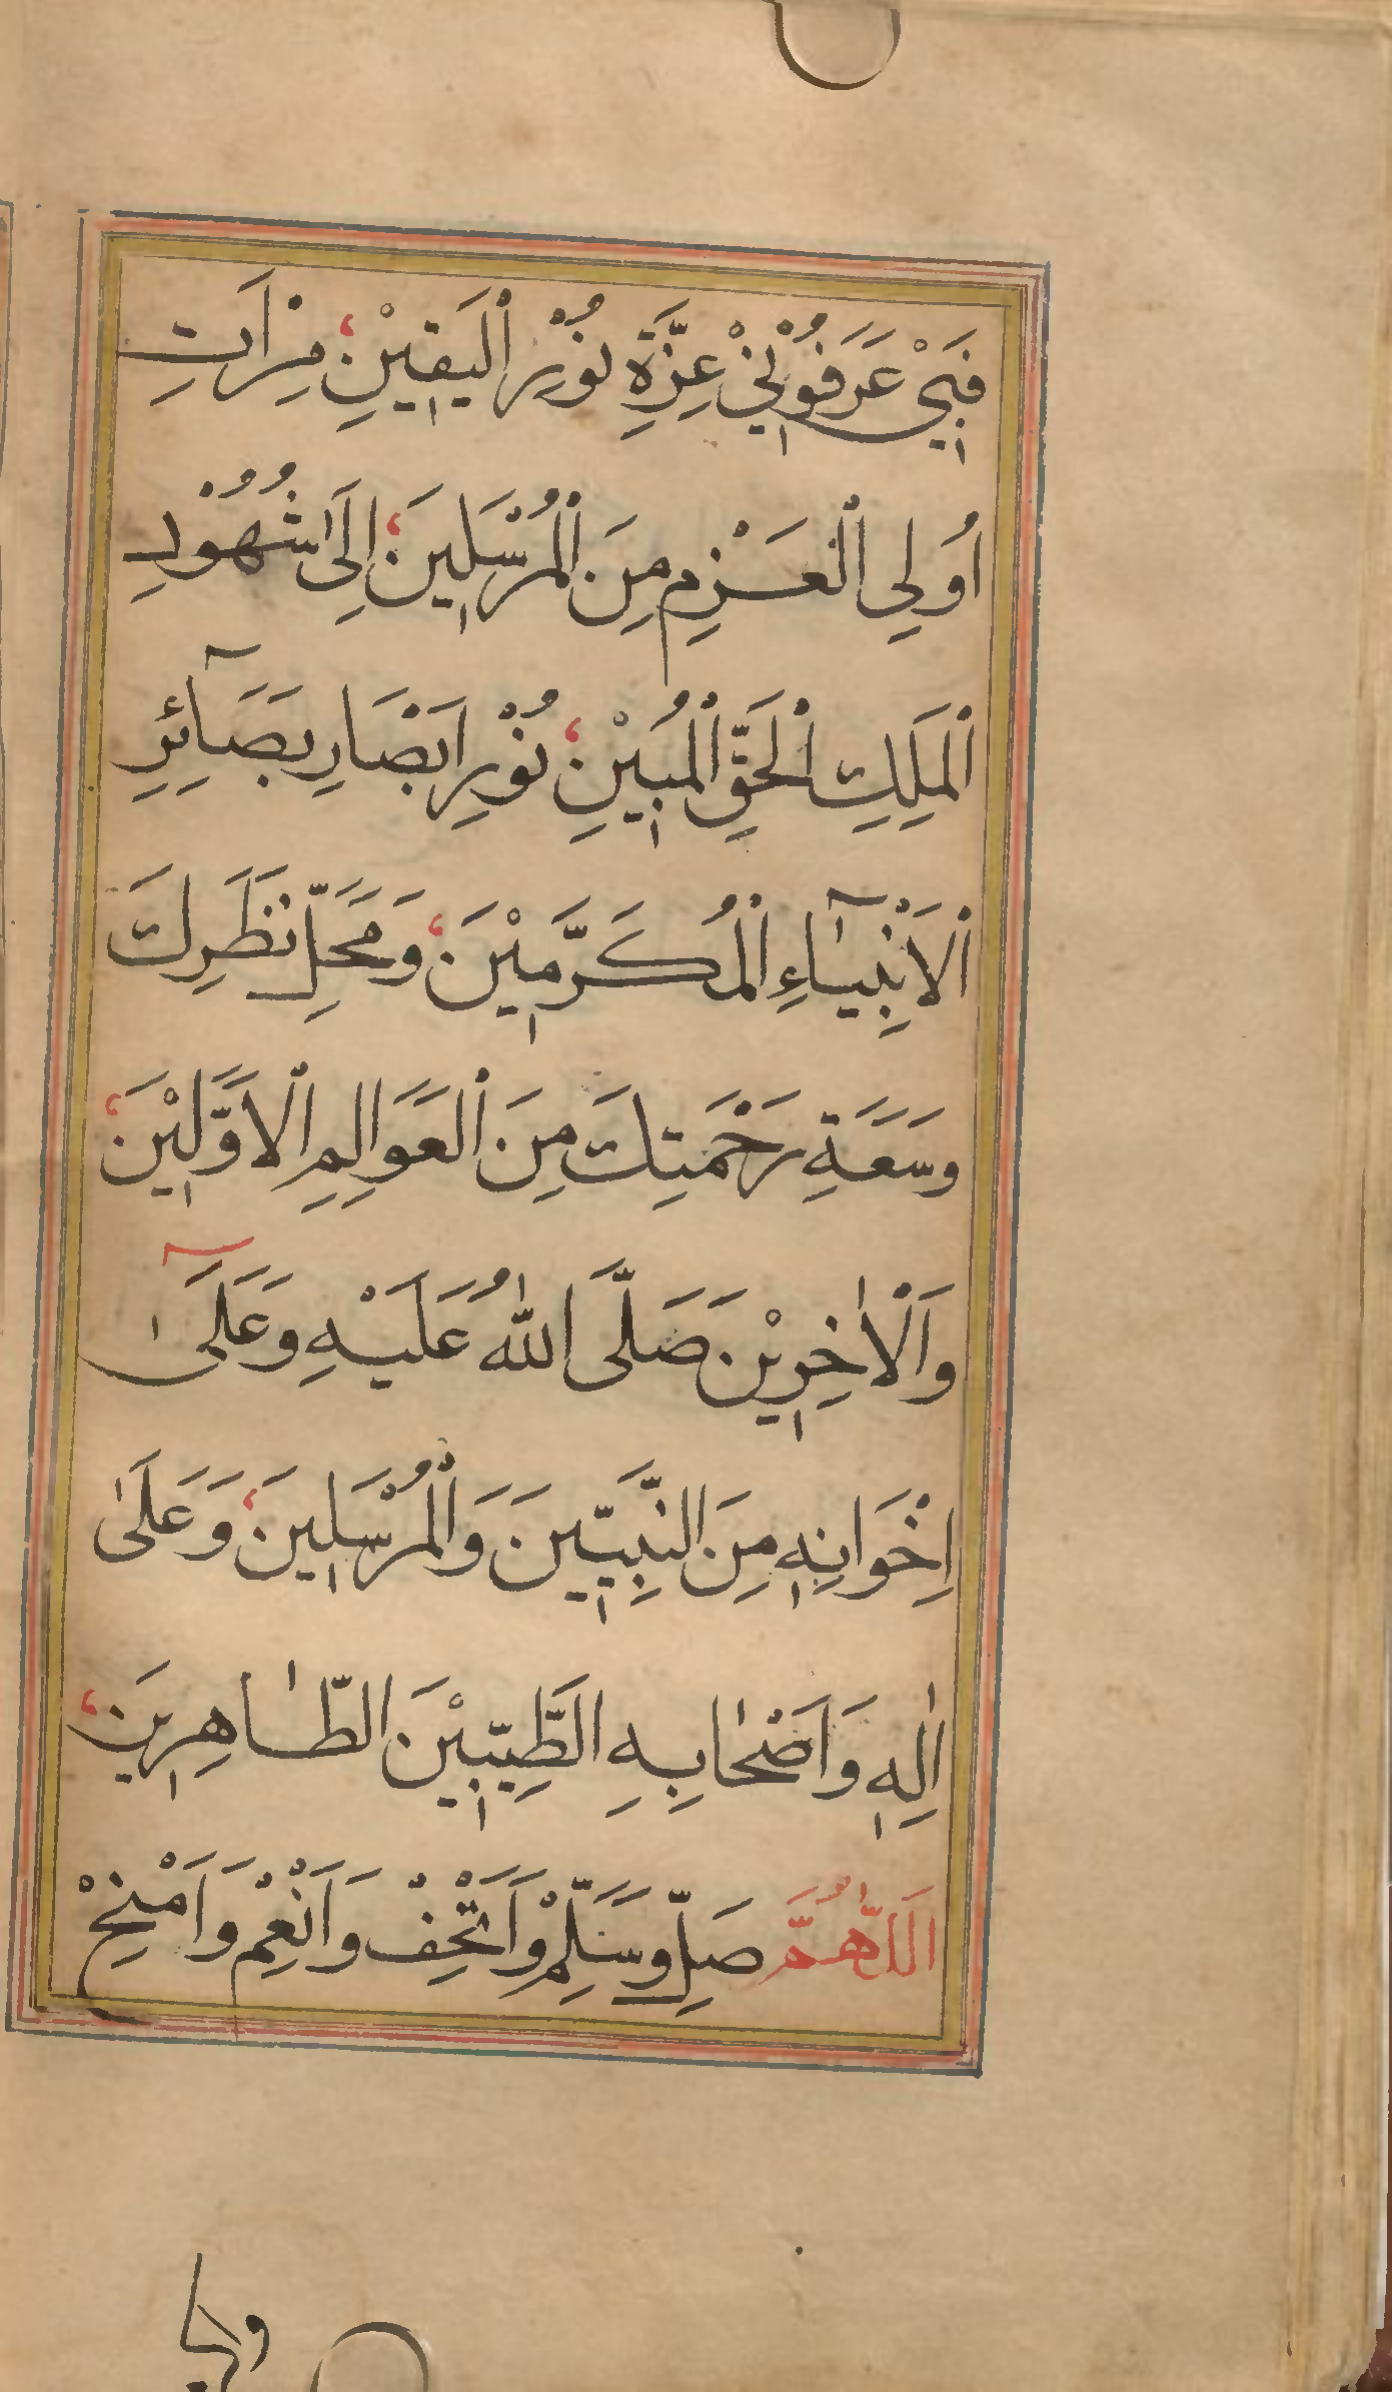 فَبِيْ عَرَفُوْنِيْ عِزَّةِ نُوْرِ الْيَقِيْنِ، مِرْاَتِ
اُولِى الْعَزْمِ مِنَ الْمُرْسَلِينَ، اِلَى شُهُوْدِ
الْمَلِكِ الْحَقِّ الْمُبِيْنِ، نُوْرِ اَبْصَارِ بَصَآئِرِ
الْاَنْبِيَآءِ الْمُكَرَّمِيْنَ، وَمَحَلِّ نَظَرِكَ
وَسَعَةِ رَحْمَتِكَ مِنَ الْعَوَالِمِ الْاَوَّلِيْنَ،
وَالْاٰخِرِيْنَ صَلَّى اللّٰهُ عَلَيْهِ وَعَلَىٓ
اِخْوَانِهٖ مِنَ النَّبِيّٖينَ وَالْمُرْسَلِينَ، وَعَلَىٰ
اٰلِهٖ وَاَصْحٰابِهِ الطَّيِّبِيْنَ الطّٰاهِرِينَ،
اَللّٰهُمَّ صَلِّ وَسَلِّمْ وَاَتْحِفْ وَاَنْعِمْ وَامْنِحْ